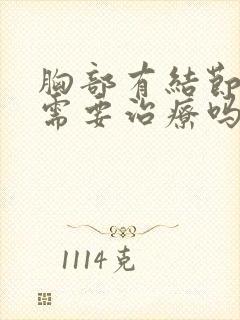 胸部有結節
需要治療嗎
1114克